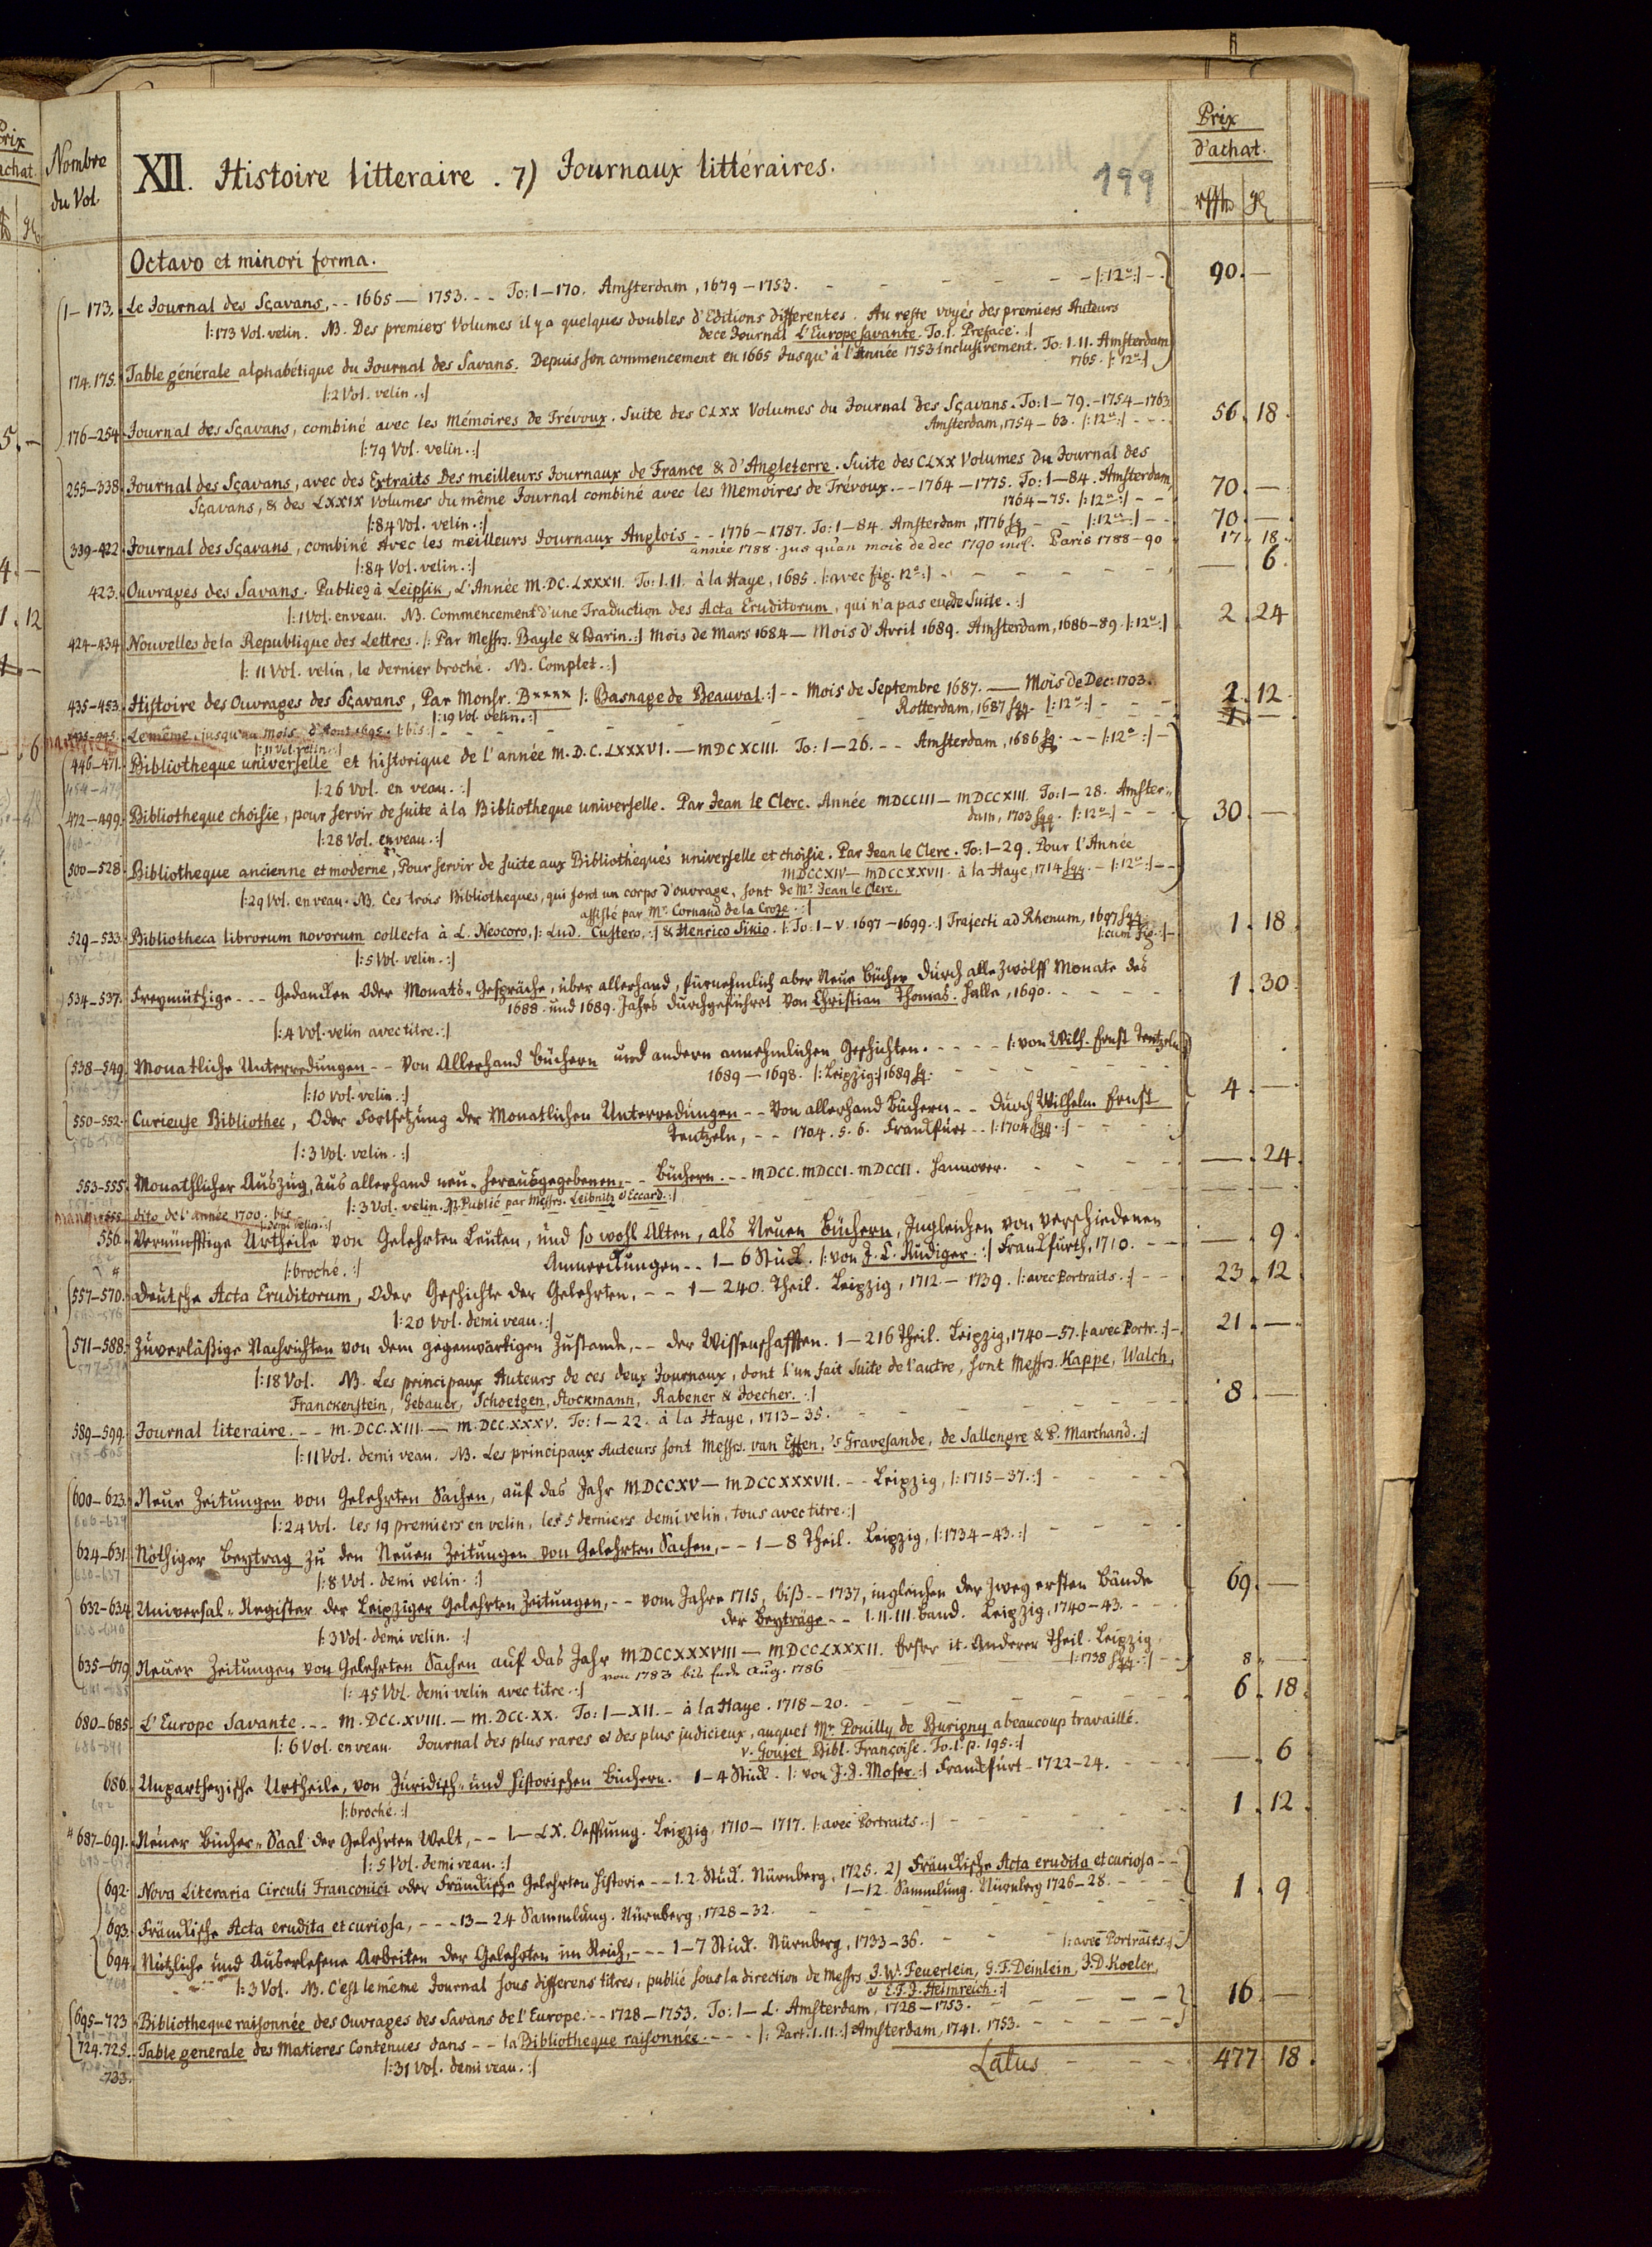 Prix
d'achat.
Nombre
du Vol.
XII. Histoire litteraire. 7) Journaux littéraires.
199
Octavo et minori forma.
1–173. Le Journal des Sçavans, -- 1665 — 1753. -- To: 1–170. Amsterdam, 1679–1753. - - - - - |:12º:| - 90. —
|:173 Vol. velin. NB. Des premiers Volumes il y a quelques doubles d'Editions differentes. Au reste voyés des premiers Auteurs
de ce Journal L'Europe savante. To. I. Preface. :|
174.175. Table générale alphabétique du Journal des Savans. Depuis son commencement en 1665 Jusqu'à l'Année 1753 inclusivement. To: I.II. Amsterdam
1765. |:12º:|
|:2 Vol. velin.:|
176–254. Journal des Sçavans, combiné avec les Mémoires de Trévoux. Suite des CLXX Volumes du Journal des Sçavans. To: 1–79. -1754–1763
Amsterdam, 1754–63. |:12º:| - - 56. 18.
|:79 Vol. velin.:|
255–338. Journal des Sçavans, avec des Extraits Des meilleurs Journaux de France & d'Angleterre. Suite des CLXX Volumes Du Journal des
Sçavans, & des LXXIX Volumes du même Journal combiné avec les Memoires de Trévoux. -- 1764–1775. To: 1–84. Amsterdam,
1764–75. |:12º:| - - 70. —
|:84 Vol. velin.:|
339–422. Journal des Sçavans, combiné Avec les meilleurs Journaux Anglois -- 1776–1787. To: 1–84. Amsterdam, 1776 sq. - - |:12º:| - - 70. —
année 1788. jus qu'au mois de dec 1790 incl. Paris 1788–90 17. 18.
|:84 Vol. velin.:|
423. Ouvrages des Savans. Publiez à Leipsik, L'Année M.DC.LXXXII. To: I.II. à la Haye, 1685. |:avec fig. 12º:| - - - - - — . 6.
|:1 Vol. en veau. NB. Commencement d'une Traduction des Acta Eruditorum, qui n'a pas eu de Suite.:|
424–434. Nouvelles de la Republique des Lettres. |: Par Messrs. Bayle & Barin.:| Mois de Mars 1684 — Mois d'Avril 1689. Amsterdam, 1686–89. |:12º:| 2. 24
|: 11 Vol. velin, le dernier broché. NB. Complet.:|
435–453. Histoire des Ouvrages des Sçavans, Par Monsr. B**** |: Basnage de Beauval.:| -- Mois de Septembre 1687. — Mois de Dec: 1703.
Rotterdam, 1687 sqq. |:12º:| - - - 2. 12
|:19 Vol. velin.:|
Le même, jusqu'au mois d'Aout 1695. |:bis:| - - - 1. —
|:11 Vol. velin.:|
446–471. Bibliotheque universelle et historique de l'année M.D.C.LXXXVI. — MDCXCIII. To: 1–26. -- Amsterdam, 1686 sq. -- |:12º:| -
|:26 Vol. en veau.:|
472–499. Bibliotheque choisie, pour servir de suite à la Bibliotheque universelle. Par Jean le Clerc. Année MDCCIII — MDCCXIII. To: 1–28. Amster=
dam, 1703 sqq. |:12º:| - - - 30. —
|:28 Vol. en veau.:|
500–528. Bibliotheque ancienne et moderne, Pour servir de suite aux Bibliotheques universelle et choisie. Par Jean le Clerc. To: 1–29. Pour l'Année
MDCCXIV — MDCCXXVII. à la Haye, 1714 sqq. - |:12º:| - -
|:29 Vol. en veau. NB. Ces trois Bibliotheques, qui font un corps d'ouvrage, sont de Mr. Jean le Clerc,
assisté par Mr. Cornand de la Croze.:|
529–533. Bibliotheca librorum novorum collecta à L. Neocoro, |: Lud. Custero,:| & Henrico Sikio. |: To: I–V. 1697–1699.:| Trajecti ad Rhenum, 1697 sqq.
|:cum fig.:| - 1. 18
|:5 Vol. velin.:|
534–537. Freymüthige --- Gedancken Oder Monats=Gespräche, über allerhand, fürnehmlich aber Neue Bücher Durch alle Zwölff Monate des
1688. und 1689. Jahrs durchgeführet von Christian Thomas. Halle, 1690. - - - - - 1. 30
|:4 Vol. velin avec titre.:|
538–549. Monatliche Unterredungen -- Von Allerhand Büchern und andern annehmlichen Geschichten. - - - - |: von Wilh. Ernst Tentzeln:|
1689–1698. |:Leipzig:| 1689 sq. - - -
|:10 Vol. velin.:| 4. —
550–552. Curieuse Bibliothec, Oder Fortsetzung der Monatlichen Unterredungen -- Von allerhand Büchern -- Durch Wilhelm Ernst
Tentzeln, -- 1704.5.6. Franckfurt -- |:1704 sqq.:| - - -
|:3 Vol. velin.:|
553–555. Monathlicher Auszug, aus allerhand neu=herausgegebenen, -- Büchern. -- MDCC. MDCCI. MDCCII. Hannover. - - - - — . 24.
|:3 Vol. velin. NB. Publié par Messrs. Leibnitz & Eccard.:|
555. dito de l'année 1700. bis
|:demi velin.:|
556. Vernünfftige Urtheile von Gelehrten Leuten, und so wohl Alten, als Neuen Büchern, Ingleichen von verschiedenen
Anmerckungen -- 1–6 Stück. |: von J. C. Rüdiger.:| Franckfurth, 1710. - - — . 9.
|:broché.:|
557–570. Deutsche Acta Eruditorum, Oder Geschichte der Gelehrten, -- 1–240. Theil. Leipzig, 1712.–1739. |:avec Portraits.:| - - 23. 12
|:20 Vol. demi veau.:|
571–588. Zuverläßige Nachrichten von dem gegenwärtigen Zustande, -- der Wissenschafften. 1–216 Theil. Leipzig, 1740–57. |:avec Portr.:| - 21. —
|:18 Vol. NB. Les principaux Auteurs de ces deux Journaux, dont l'un fait Suite de l'autre, sont Messrs. Kappe, Walch,
Franckenstein, Gebauer, Schoetgen, Stockmann, Rabener & Joecher.:|
589–599. Journal literaire. -- M.DCC.XIII. — M.DCC.XXXV. To: 1–22. à la Haye, 1713–35. - - - 8. —
|:11 Vol. demi veau. NB. Les principaux Auteurs sont Messrs. van Effen, 's Gravesande, de Sallengre & P. Marchand.:|
600–623. Neue Zeitungen von Gelehrten Sachen, auf das Jahr MDCCXV — MDCCXXXVII. -- Leipzig, |:1715–37.:| - - -
|:24 Vol. les 19 premiers en velin, les 5 derniers demi velin, tous avec titre.:|
624–631. Nöthiger Beytrag zu den Neuen Zeitungen von Gelehrten Sachen, -- 1–8 Theil. Leipzig, |:1734–43.:| - - -
|:8 Vol. demi velin.:|
632–634. Universal=Register der Leipziger Gelehrten Zeitungen, -- vom Jahre 1715, biß -- 1737, ingleichen der Zwey ersten Bände
der Beyträge -- I.II.III. Band. Leipzig, 1740–43. - - 69. —
|:3 Vol. demi velin.:|
635–679. Neuer Zeitungen von Gelehrten Sachen auf das Jahr MDCCXXXVIII — MDCCLXXXII. Erster it. Anderer Theil. Leipzig
|:1738 sqq.:| - -
von 1783 bis Ende Aug. 1786 8. —
|:45 Vol. demi velin avec titre.:|
680–685. L'Europe Savante. --- M.DCC.XVIII. — M.DCC.XX. To: I–XII. - à la Haye. 1718–20. - - - 6. 18.
|:6 Vol. en veau. Journal des plus rares & des plus judicieux, auquel Mr. Pouilly de Burigny a beaucoup travaillé.
v. Goujet Bibl. Françoise. To. I. p. 195.:|
686. Unpartheyische Urtheile, von Juridisch= und Historischen Büchern. 1–4 Stück. |: von J. J. Moser.:| Franckfurt - 1722–24. - - — . 6
|:broché.:|
687–691. Neuer Bücher=Saal der Gelehrten Welt, -- I–LX. Oeffnung. Leipzig, 1710–1717. |:avec Portraits.:| - 1. 12.
|:5 Vol. demi veau.:|
692. Nova Literaria Circuli Franconici oder Fränckische Gelehrten Historie -- 1.2. Stück. Nürnberg, 1725. 2) Fränckische Acta erudita et curiosa --
1–12. Sammlung. Nürnberg 1726–28. - - - 1. 9
693. Fränckische Acta erudita et curiosa, --- 13–24 Sammlung. Nürnberg, 1728–32. - - -
694. Nützliche und Auserlesene Arbeiten der Gelehrten im Reich, --- 1–7 Stück. Nürnberg, 1733–36. - - - |:avec Portraits.:|
|:3 Vol. NB. C'est le même Journal sous differens titres, publié sous la direction de Messrs J. W. Feuerlein, G. F. Deinlein, J. D. Koeler,
& E. F. J. Heimreich.:|
695–723. Bibliotheque raisonnée des Ouvrages des Savans de l'Europe. -- 1728–1753. To: I–L. Amsterdam, 1728–1753. - - - 16. —
724.725. Table generale des Matieres Contenues dans -- la Bibliotheque raisonnée. - - - |: Part. I.II.:| Amsterdam, 1741. 1753. - - -
|:31 Vol. demi veau.:|
733.
Latus - - - 477 18.